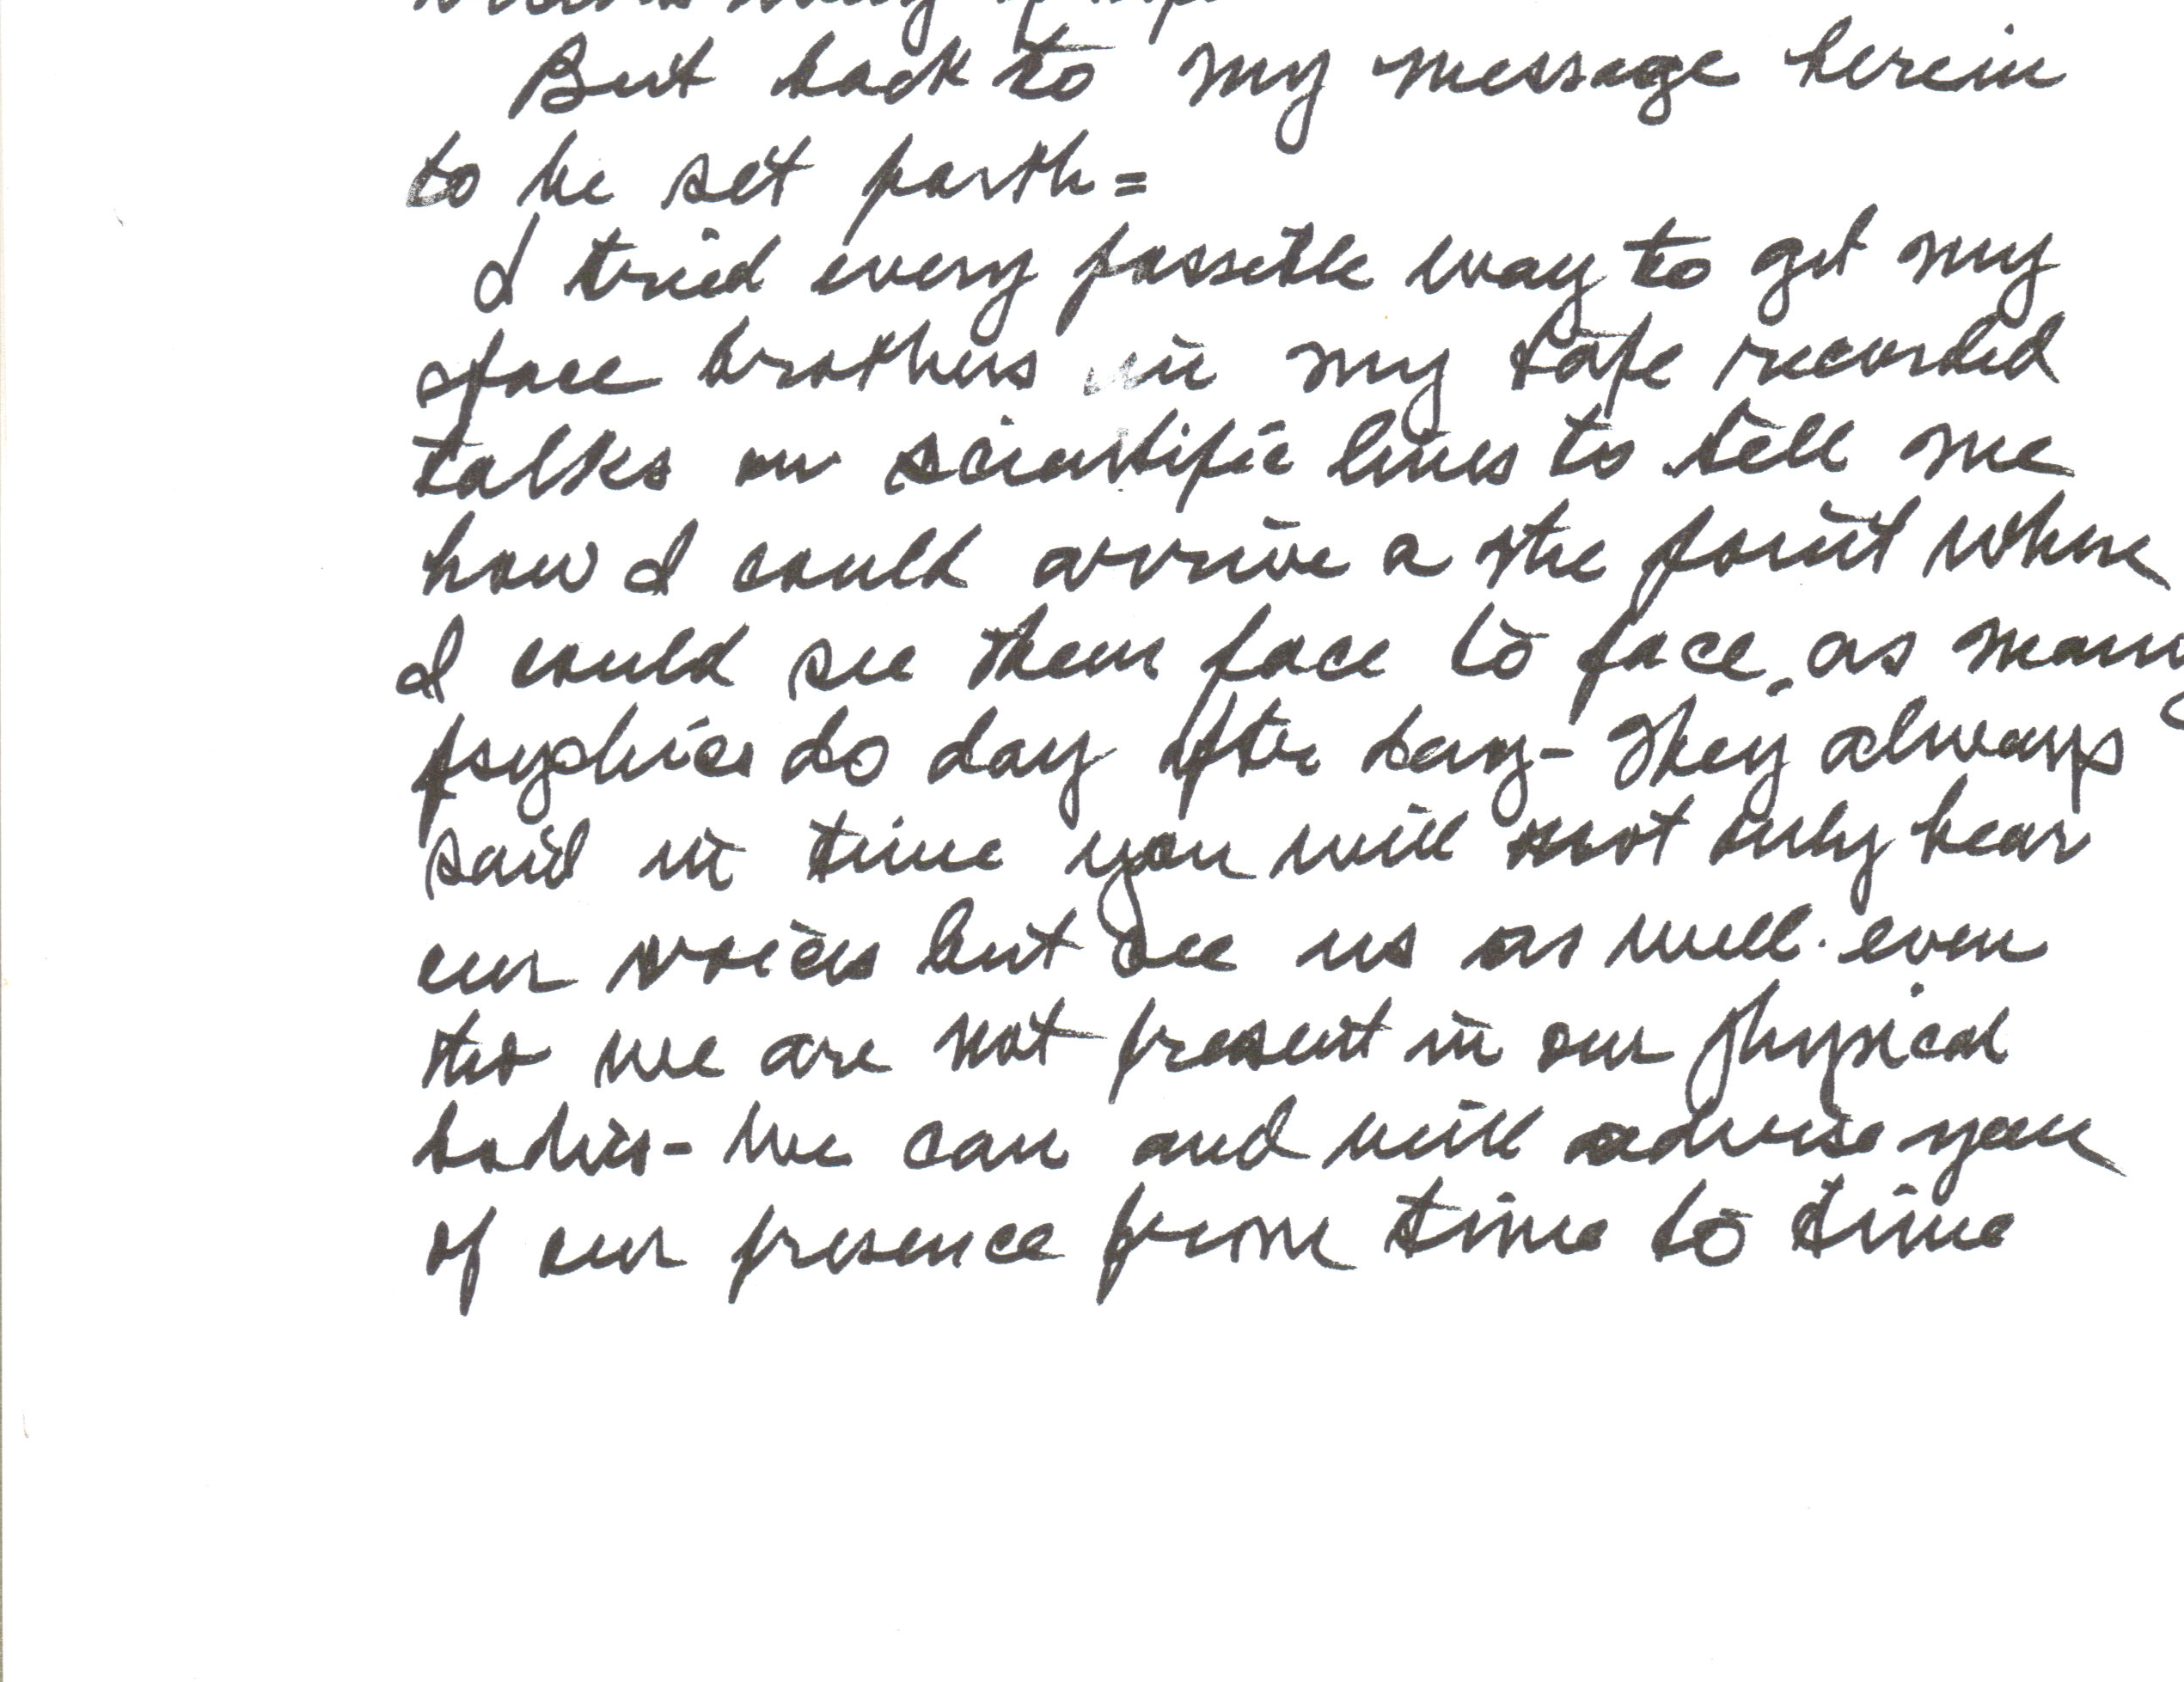 But back to my message herein
to be set forth =
I tried every possible way to get my
brothers in my tape recorded
talks on scientific lines to tell me
how I could arrive a the point where
I could see them face to face, as many
psychics do day after day - They always
said in time you will not only hear
our voices but see us as well. even
tho we are not present in our physical
bodies - We can and will advise you
of our presence from time to time